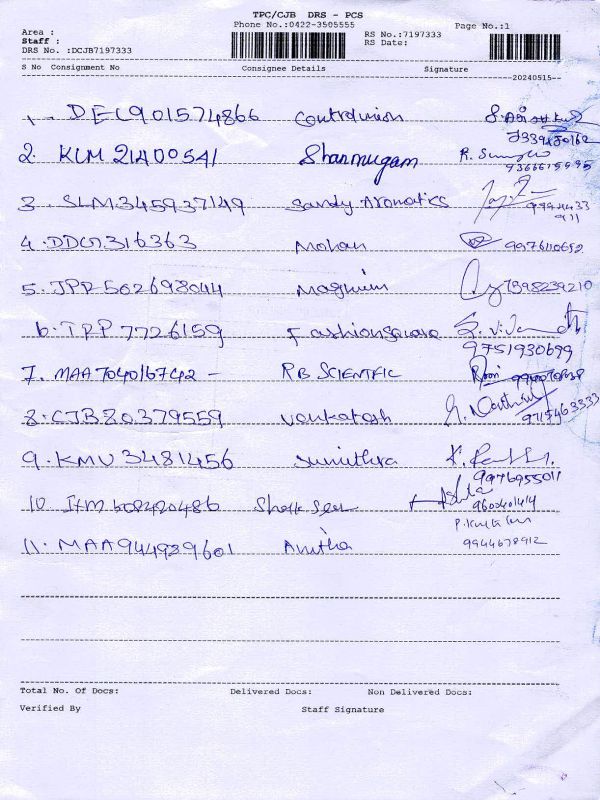 TPC/CJB DRS - PCS
Phone No.:0422-3505555
Page No.:1
Area :
Staff :
DRS No. :DCJB7197333
RS No.:7197333
RS Date:
S No Consignment No Consignee Details Signature
20240515
1 DEL901574866
2. KLM 21400541 Shanmugam 9366615595
3. SLM345937149 Sandy Aromatics
4. DDG316363 Mohan 9976110652
5. JPR502698044 Magnum 7598239210
6. TRP 7726159 Fashionsquare 9751930699
7. MAA704016742 - RB SCIENTFIC
8. CJB80379559 Venkatesh 9715463333
9. KMU3481456 Sumithra 9976955011
10 9600401414
11. MAA944939601 Anitha 9944678912
Total No. Of Docs: Delivered Docs: Non Delivered Docs:
Verified By Staff Signature